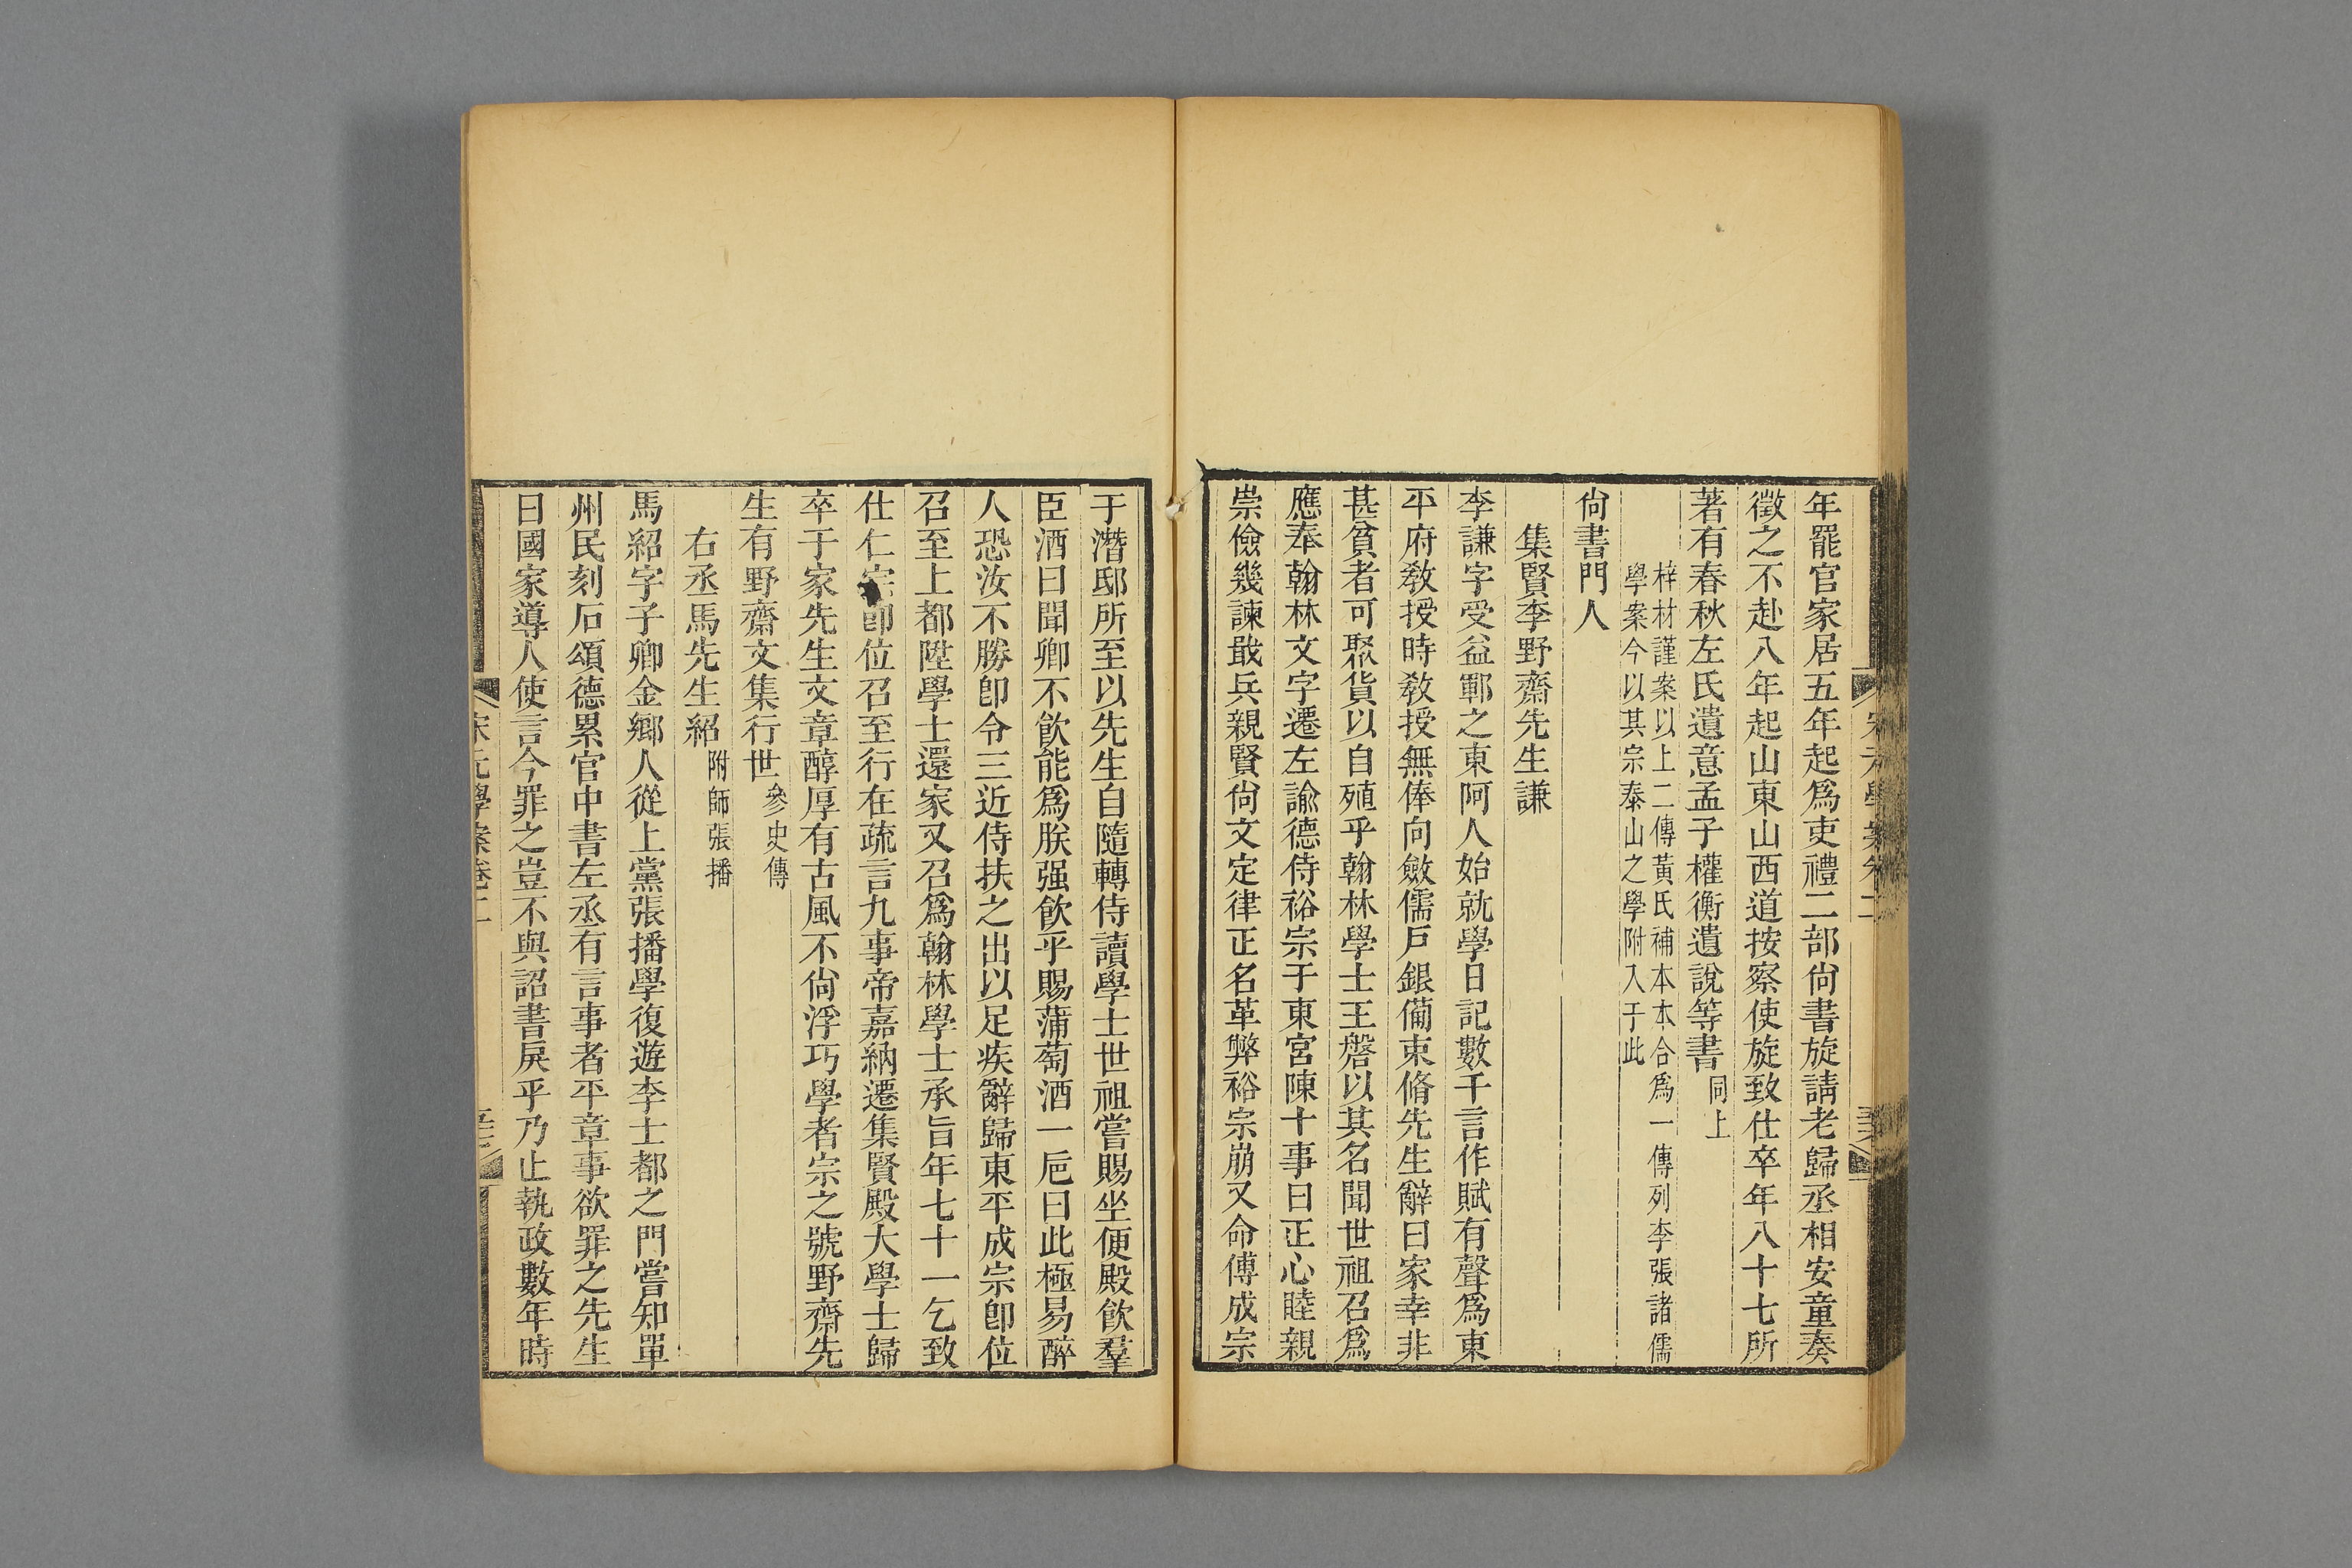 年罷官家居五年起爲吏禮二部尙書旋請老歸丞相安童奏
徵之不赴八年起山東山西道按察使旋致仕卒年八十七所
著有春秋左氏遺意孟子權衡遺說等書同上
梓材謹案以上二傳黃氏補本本合爲一傳列李張諸儒
學案今以其宗泰山之學附入于此
尙書門人
集賢李野齋先生謙
李謙字受益鄆之東阿人始就學日記數千言作賦有聲爲東
平府敎授時敎授無俸向斂儒戶銀備束脩先生辭曰家幸非
甚貧者可聚貨以自殖乎翰林學士王磐以其名聞世祖召爲
應奉翰林文字遷左諭德侍裕宗于東宮陳十事曰正心睦親
崇儉幾諫戢兵親賢尙文定律正名革弊裕宗崩又命傅成宗
于潛邸所至以先生自隨轉侍讀學士世祖嘗賜坐便殿飮羣
臣酒曰聞卿不飮能爲朕强飮乎賜蒲萄酒一巵曰此極易醉
人恐汝不勝卽令三近侍扶之出以足疾辭歸東平成宗卽位
召至上都陞學士還家又召爲翰林學士承旨年七十一乞致
仕仁宗卽位召至行在疏言九事帝嘉納遷集賢殿大學士歸
卒于家先生文章醇厚有古風不尙浮巧學者宗之號野齋先
生有野齋文集行世參史傳
右丞馬先生紹附師張播
馬紹字子卿金鄉人從上黨張播學復遊李士都之門嘗知單
州民刻石頌德累官中書左丞有言事者平章事欲罪之先生
曰國家導人使言今罪之豈不與詔書戾乎乃止執政數年時
宋元學案卷二